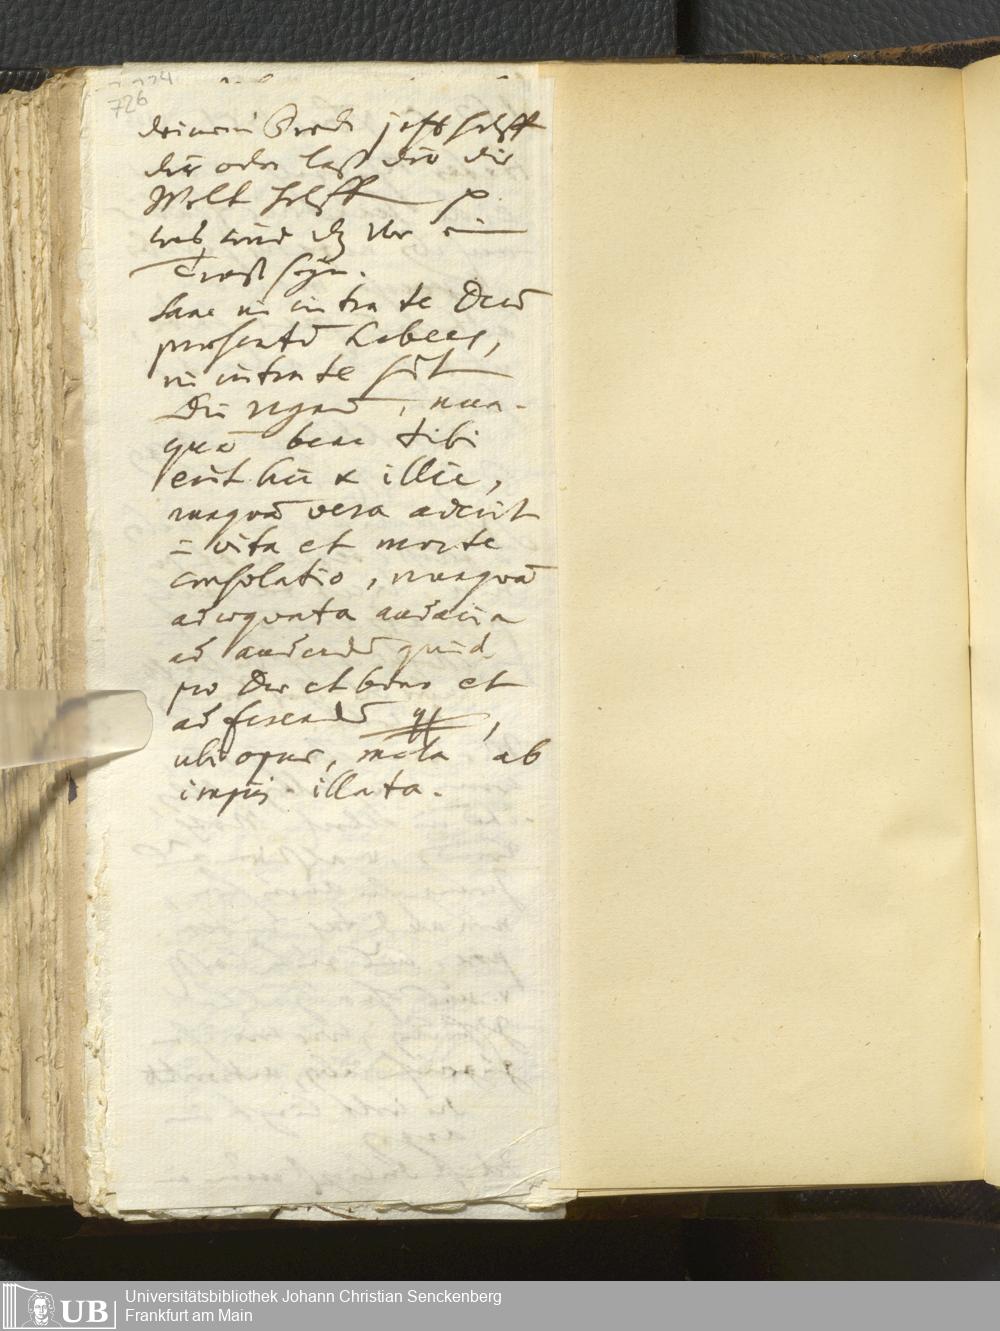 726
deinem Gott jetzt hilfft
dir oder laß dir die
Welt helffen
was wird dz vor ein
Trost seyn.
Sane ni intra te Deū
praesentē habees,
ni intra te sit
Dei regnū, nun-
quā bene tibi
erit hic & illic,
nunquā vera aderit
in vita et morte
consolatio, nunquā
adaequata audacia
ad audendū quid
pro Deo et bono et
ad ferendū,
ubi opus, mala ab
impiis illata.
UB
Universitätsbibliothek Johann Christian Senckenberg
Frankfurt am Main